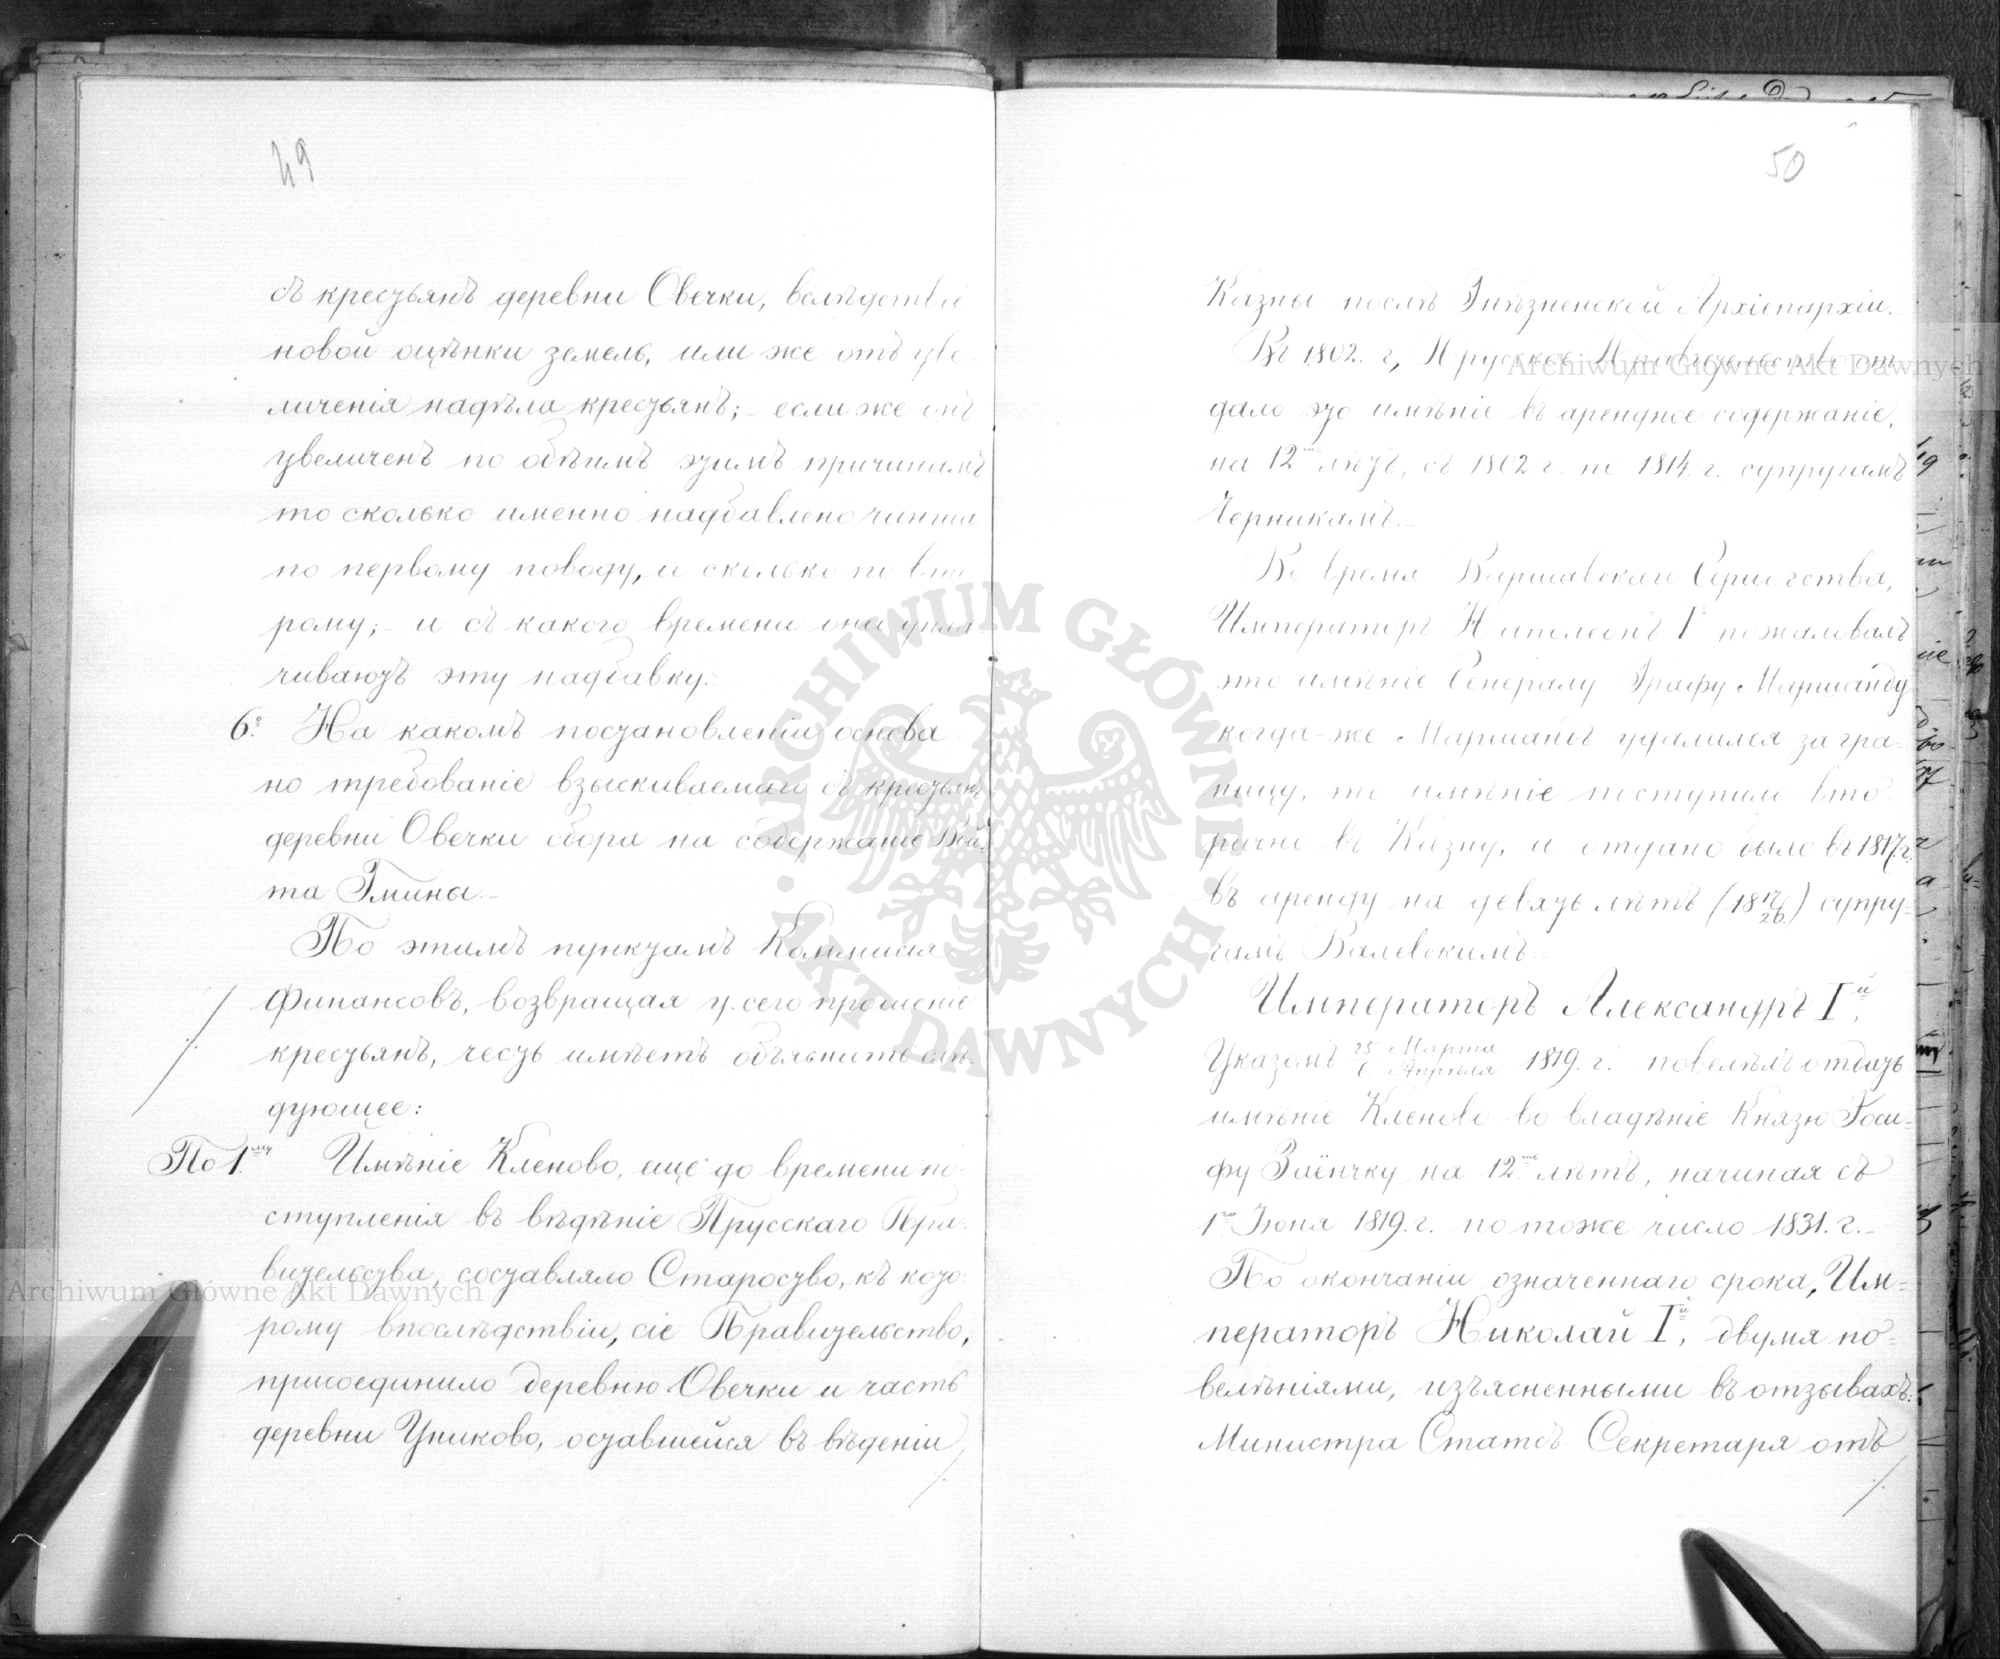 49
съ крестьянъ деревни Овечки, вслѣдствіе
новой оцѣнки земель, или же отъ уве
личенія надѣла крестьянъ; - если же онъ
увеличенъ по обѣимъ этимъ причинамъ
то сколько именно надбавлено чинша
по первому поводу, и сколько по вто
рому; - и съ какого времени они упла
чиваютъ эту надбавку. -
6.° На какомъ постановленіи основа
но требованіе взыскиваемаго съ крестьянъ
деревни Овечки сбора на содержаніе Вой-
та Гмины. -
По этимъ пунктамъ Коммисія
Финансовъ, возвращая у сего прошеніе
крестьянъ, честь имѣетъ объяснить слѣ-
дующее:
По 1.му Имѣніе Кленово, еще до времени по-
ступленія въ вѣдѣніе Прусскаго Пра-
вительства, составляло Староство, къ кото-
рому впослѣдствіи, сіе Правительство,
присоединило деревню Овечки и часть
деревни Униково, оставшейся въ вѣденіи
50
Казны послѣ Гнѣзненской Архіепархіи.
Въ 1802. г, Прусское Правительство от
дало это имѣніе въ арендное содержаніе,
на 12ть лѣтъ, съ 1802 г. по 1814. г. супругамъ
Черникамъ. -
Во время Варшавскаго Герцогства,
Императоръ Наполеонъ I пожаловалъ
это имѣніе Генералу Графу Маршанду
когда-же Маршандъ удалился за гра-
ницу, то имѣніе поступило вто
рично въ Казну, и отдано было въ 1817 г.
въ аренду на девять лѣтъ (18 17/26) супру-
гамъ Валевскимъ. -
Императоръ Александръ I.й
Указомъ 25 Марта / 6 Апрѣля 1819. г. повелѣлъ отдать
имѣніе Кленово во владѣніе Князю Іоси-
фу Заіончку на 12.ть лѣтъ, начиная съ
1го Іюня 1819. г. по тоже число 1831. г. -
По окончаніи означеннаго срока, Им-
ператоръ Николай I.й, двумя по-
велѣніями, изъясненными въ отзывахъ
Министра Статсъ Секретаря отъ
Archiwum Główne Akt Dawnych
Archiwum Główne Akt Dawnych
· ARCHIWUM GŁÓWNE · AKT DAWNYCH